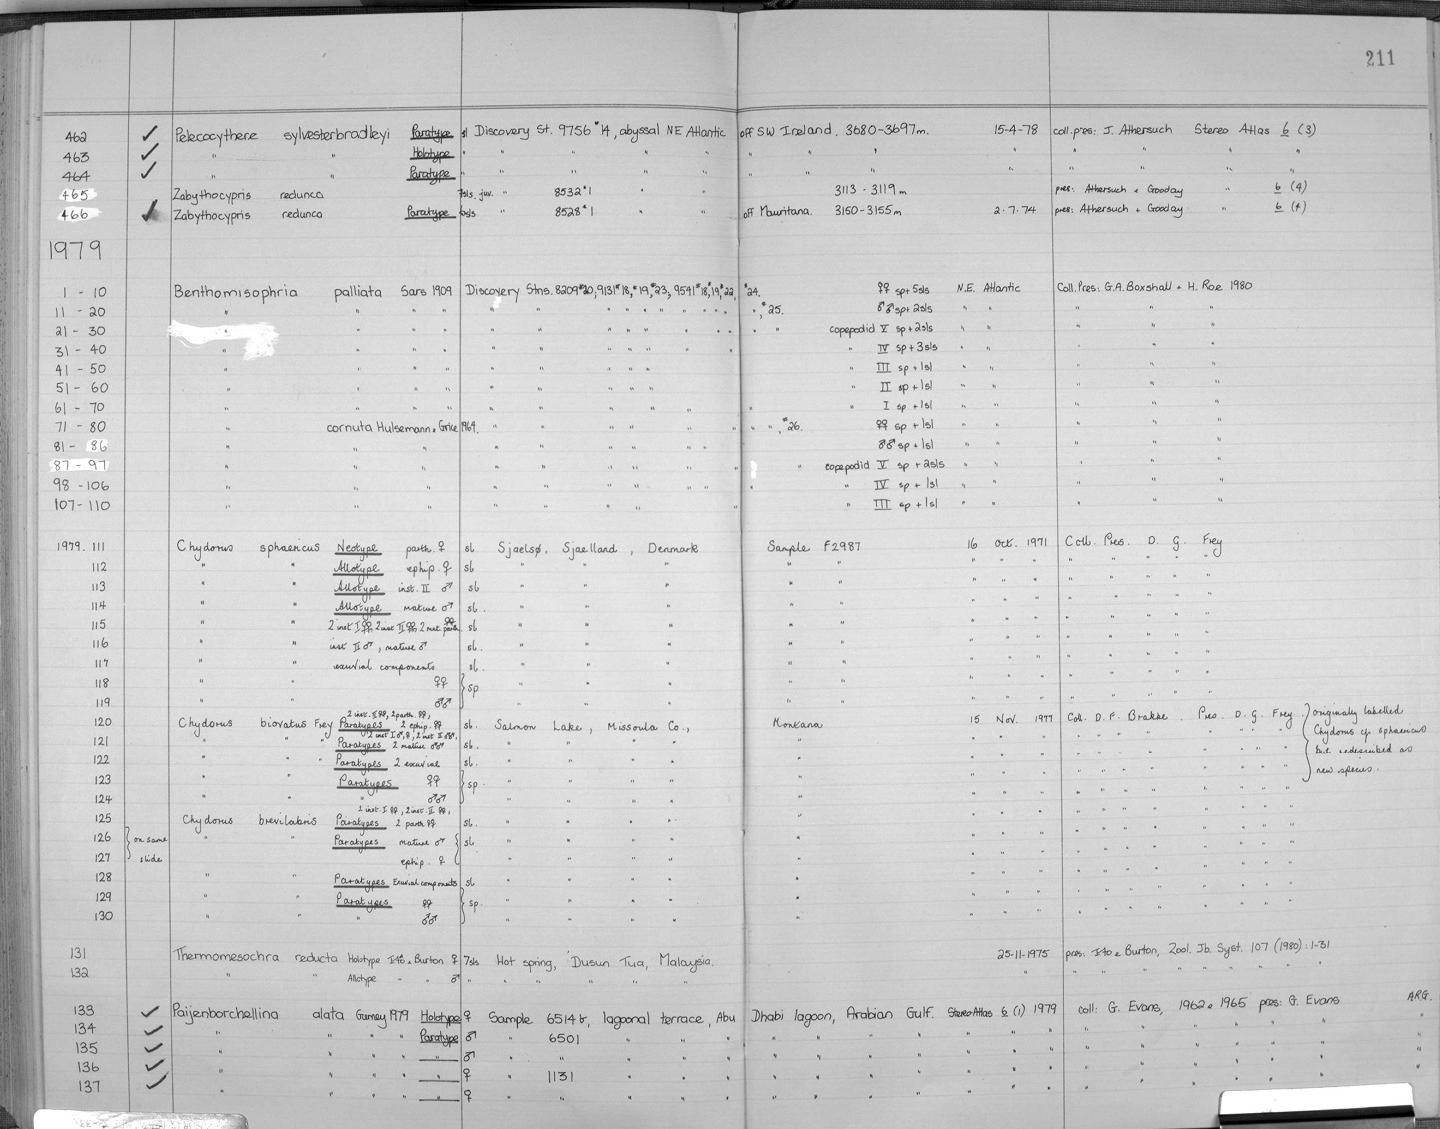 211
462 ✓ Pelecocythere sylvesterbradleyi Paratype sl Discovery St. 9756 #14, abyssal NE Atlantic off SW Ireland. 3680-3697m. 15-4-78 coll.pres: J. Athersuch Stereo Atlas 6 (3)
463 ✓ " " Holotype " " " " " " " " " " "
464 ✓ " " Paratype " " " " " " " " " "
465 Zabythocypris redunca 7sls. juv. " 8532#1 " " 3113 - 3119m pres: Athersuch + Gooday " 6 (4)
466 ✓ Zabythocypris redunca Paratype sls " 8528#1 " " off Mauritana. 3150-3155m 2.7.74 pres: Athersuch + Gooday " 6 (4)
1979
1 - 10 Benthomisophria palliata Sars 1909 Discovery Stns. 8209#20, 9131#18, #19, #23, 9541#18, #19, #22, #24. ♀♀ sp+5sls N.E. Atlantic Coll.Pres: G.A. Boxshall + H. Roe 1980
11 - 20 " " " " " " " " " " " " " ,#25. ♂♂ sp+2sls " " " " "
21 - 30 " " " " " " " " " " " copepodid V sp+2sls " " " " "
31 - 40 " " " " " " " " " " " IV sp+3sls " " " " "
41 - 50 " " " " " " " " " " III sp+1sl " " " " "
51 - 60 " " " " " " " " " " II sp+1sl " " " " "
61 - 70 " " " " " " " " " " I sp+1sl " " " " "
71 - 80 " cornuta Hulsemann + Grice 1964. " " " " " " " " ,#26. ♀♀ sp+1sl " " " " "
81 - 86 " " " " " " " " " " ♂♂ sp+1sl " " " " "
87 - 97 " " " " " " " " " " copepodid V sp+2sls " " " " "
98 - 106 " " " " " " " " " " " IV sp+1sl " " " " "
107 - 110 " " " " " " " " " III sp+1sl " " " " "
1979. 111 Chydorus sphaericus Neotype parth. ♀ sl Sjaelsø, Sjaelland, Denmark Sample F2987 16 Oct. 1971 Coll. Pres. D. G. Frey
112 " " Allotype ephip. ♀ sl " " " " " " " " " " " "
113 " " Allotype inst. II ♂ sl. " " " " " " " " " " " "
114 " " Allotype mature ♂ sl. " " " " " " " " " " " "
115 " " 2 inst I ♀♀, 2 inst II ♀♀, 2 mat. parth ♀♀ sl " " " " " " " " " " " "
116 " " inst II ♂, mature ♂ sl. " " " " " " " " " " " "
117 " " exuvial components sl. " " " " " " " " " " " "
118 " " ♀♀ } sp " " " " " " " " " " " "
119 " " ♂♂ " " " " " " " " " " " "
120 Chydorus biovatus Frey Paratypes 2 inst. II ♀♀, 2 parth. ♀♀, 2 ephip. ♀♀ sl. Salmon Lake, Missoula Co., Montana 15 Nov. 1977 Coll. D.F. Brakke. Pres. D. G. Frey. } originally labelled
121 " " " Paratypes 2 inst I ♂, ♀, 2 inst II ♂♂, 2 mature ♂♂ sl. " " " " " " " " " " " " Chydorus cf sphaericus
122 " " " Paratypes 2 exuvial sl. " " " " " " " " " " " " but redescribed as
123 " " Paratypes ♀♀ } sp. " " " " " " " " " " " " new species.
124 " " " ♂♂ " " " " " " " " " " " "
125 Chydorus brevilabris Paratypes 2 inst. I ♀♀, 2 inst. II ♀♀, 2 parth ♀♀ sl. " " " " " " " " " " " "
126 } on same " " Paratypes mature ♂ { sl. " " " " " " " " " " " "
127 slide ephip. ♀ " " " " " " " " " " " "
128 " " Paratypes Exuvial components sl " " " " " " " " " " " "
129 " " Paratypes ♀♀ } sp. " " " " " " " " " " " "
130 " " " ♂♂ " " " " " " " " " " " "
131 Thermomesochra reducta Holotype Itô + Burton ♀ 7sls Hot spring, Dusun Tua, Malaysia. 25-11-1975 pres: Itô + Burton, Zool. Jb. Syst. 107 (1980): 1-31
132 " " Allotype " " ♂ " " " " " " " " " " " " "
133 ✓ Paijenborchellina alata Gurney 1979 Holotype ♀ Sample 6514b, lagoonal terrace, Abu Dhabi lagoon, Arabian Gulf. Stereo Atlas 6 (1) 1979 coll: G. Evans, 1962 + 1965 pres: G. Evans ARG.
134 ✓ " " " " Paratype ♂ " 6501 " " " " " " " " " " " " " " " "
135 ✓ " " " " " ♂ " " " " " " " " " " " " " " " " "
136 ✓ " " " " " ♀ " 1131 " " " " " " " " " " " " " " "
137 ✓ " " " " " ♀ " " " " " " " " " " " " " " " "